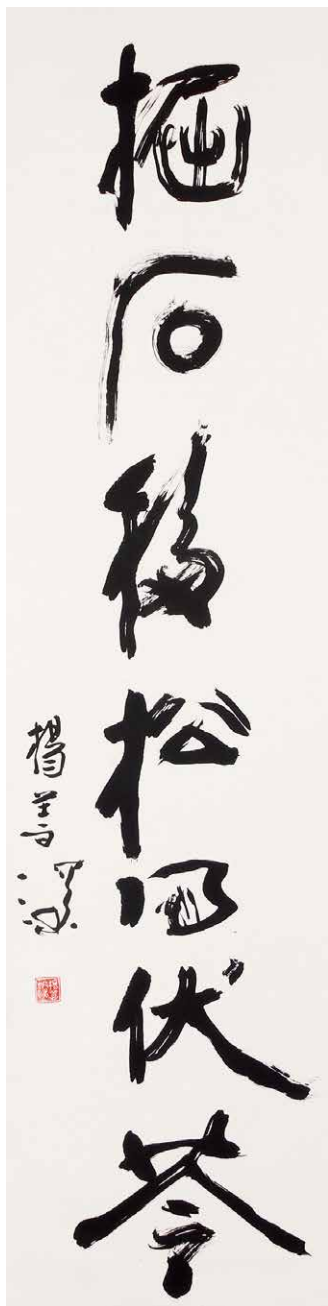 掘石移松得伏苓
楊善深